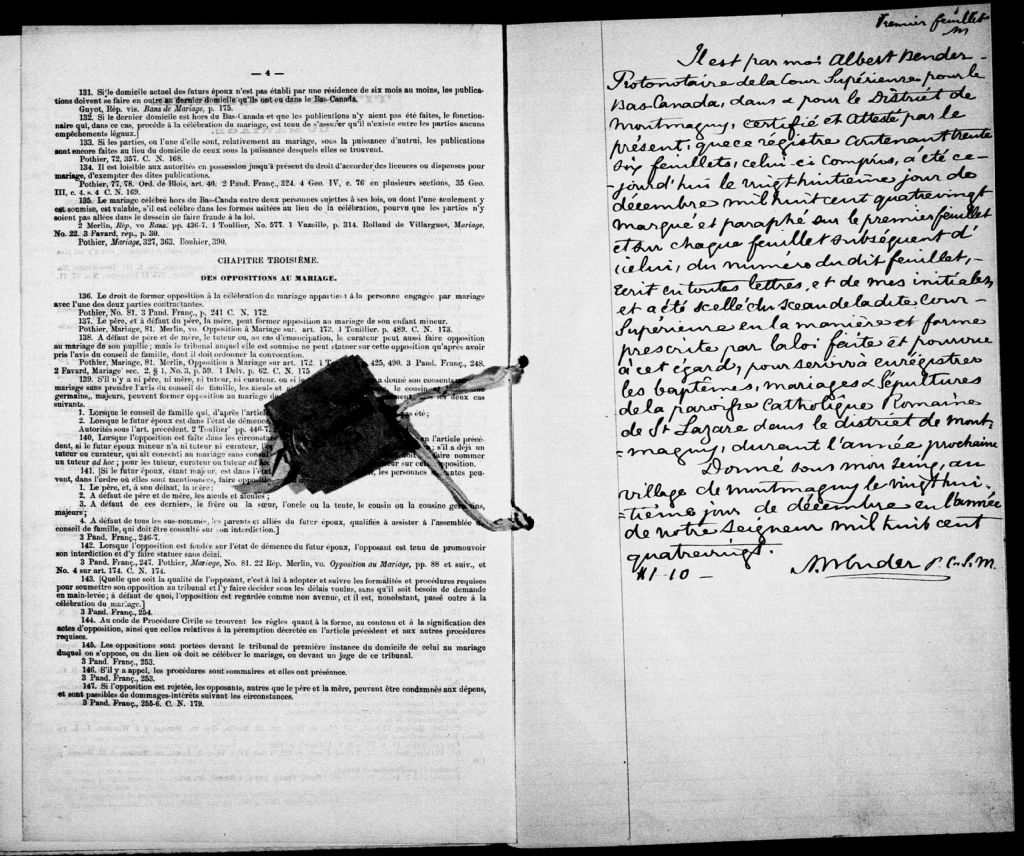 — 4 —
131. Si le domicile actuel des futurs époux n'est pas établi par une résidence de six mois au moins, les publica-
tions doivent se faire en outre au dernier domicile qu'ils ont eu dans le Bas-Canada.
Guyot, Rép. vis. Bans de Mariage, p. 175.
132. Si le dernier domicile est hors du Bas-Canada et que les publications n'y aient pas été faites, le fonction-
naire qui, dans ce cas, procède à la célébration du mariage, est tenu de s'assurer qu'il n'existe entre les parties aucuns
empêchements légaux.]
133. Si les parties, ou l'une d'elle sont, relativement au mariage, sous la puissance d'autrui, les publications
sont encore faites au lieu du domicile de ceux sous la puissance desquels elles se trouvent.
Pothier, 72, 357. C. N. 168.
134. Il est loisible aux autorités en possession jusqu'à présent du droit d'accorder des licences ou dispenses pour
mariage, d'exempter des dites publications.
Pothier, 77, 78. Ord. de Blois, art. 40. 2 Pand. Franç., 324. 4 Geo. IV, c. 76 en plusieurs sections, 35 Geo.
III, c. 4. s. 4 C. N. 169.
135. Le mariage célébré hors du Bas-Canda entre deux personnes sujettes à ses lois, ou dont l'une seulement y
est soumise, est valable, s'il est célébré dans les formes usitées au lieu de la célébration, pourvu que les parties n'y
soient pas allées dans le dessein de faire fraude à la loi.
2 Merlin, Rép, vo Bans. pp. 436-7. 1 Toullier, No. 577. 1 Vazeille, p. 314. Rolland de Villargues, Mariage,
No. 22. 3 Favard, rép., p. 30.
Pothier, Mariage, 327, 363. Bouhier, 390.
CHAPITRE TROISIÈME.
DES OPPOSITIONS AU MARIAGE.
136. Le droit de former opposition à la célébration du mariage appartient à la personne engagée par mariage
avec l'une des deux parties contractantes.
Pothier, No. 81. 3 Pand. Franç., p. 241 C. N. 172.
137. Le père, et à défaut du père, la mère, peut former opposition au mariage de son enfant mineur.
Pothier, Mariage, 81. Merlin, vo. Opposition à Mariage sur. art. 173. 1 Touillier. p. 489. C. N. 173.
138. A défaut de père et de mère, le tuteur ou, au cas d'émancipation, le curateur peut aussi faire opposition
au mariage de son pupille; mais le tribunal auquel elle est soumise ne peut statuer sur cette opposition qu'après avoir
pris l'avis du conseil de famille, dont il doit ordonner la convocation.
Pothier, Mariage, 81. Merlin, Opposition à Mariage sur art. 172. 1 T 425, 490. 3 Pand. Franç., 248.
2 Favard, Mariage sec. 2. § 1, No. 3, p. 59. 1 Delv. p. 62. C. N. 175
139. S'il n'y a ni père, ni mère, ni tuteur, ni curateur, ou si donné son consentement
mariage sans prendre l'avis du conseil de famille, les aïeuls et le cousin
germains, majeurs, peuvent former opposition au mariage les deux cas
suivants.
1. Lorsque le conseil de famille qui, d'après l'article été;
2. Lorsque le futur époux est dans l'état de démence
Autorités sous l'art. précédent. 2 Toullier pp. 446-7.
140. Lorsque l'opposition est faite dans les circonstances l'article précé-
dent, si le futur époux mineur n'a ni tuteur ni curateur, s'il a déjà un
tuteur ou curateur, qui ait consenti au mariage sans faire nommer
un tuteur ad hoc; pour les tuteur, curateur ou tuteur ad sur cette opposition.
141. [Si le futur époux, étant majeur, est dans l'état les personnes peu-
vent, dans l'ordre où elles sont mentionnées, faire opposition
1. Le père, et, à son défaut, la mère;
2. A défaut de père et de mère, les aïeuls et aïeules;
3. A défaut de ces derniers, le frère ou la sœur, l'oncle ou la tente, le cousin ou la cousine germains,
majeurs;
4. A défaut de tous les sus-nommés, les parents et alliés du futur époux, qualifiés à assister à l'assemblée
conseil de famille, qui doit être consulté sur son interdiction.]
3 Pand. Franç., 246-7.
142. Lorsque l'opposition est fondée sur l'état de démence du futur époux, l'opposant est tenu de promouvoir
son interdiction et d'y faire statuer sans délai.
3 Pand. Franç., 247. Pothier, Mariage, No. 81. 22 Rép. Merlin, vo. Opposition au Mariage, pp. 88 et suiv., et
No. 4 sur art. 174. C. N. 174.
143. [Quelle que soit la qualité de l'opposant, c'est à lui à adopter et suivre les formalités et procédures requises
pour soumettre son opposition au tribunal et l'y faire décider sous les délais voulus, sans qu'il soit besoin de demande
en main-levée; à défaut de quoi, l'opposition est regardée comme non avenue, et il est, nonobstant, passé outre à la
célébration du mariage.]
3 Pand. Franç., 254.
144. Au code de Procédure Civile se trouvent les règles quant à la forme, au contenu et à la signification des
actes d'opposition, ainsi que celles relatives à la péremption décrétée en l'article précédent et aux autres procédures
requises.
145. Les oppositions sont portées devant le tribunal de première instance du domicile de celui au mariage
duquel on s'oppose, ou du lieu où doit se célébrer le mariage, ou devant un juge de ce tribunal.
3 Pand. Franç., 253.
146. S'il y a appel, les procédures sont sommaires et elles ont préséance.
3 Pand. Franç., 253.
147. Si l'opposition est rejetée, les opposants, autres que le père et la mère, peuvent être condamnés aux dépens,
et sont passibles de dommages-intérêts suivant les circonstances.
3 Pand. Franç., 255-6. C. N. 179.
Premier feuillet
Il est par moi Albert Bender
Protonotaire de la Cour Supérieure pour le
Bas-Canada, dans & pour le District de
Montmagny, certifié et attesté par le
présent, que ce régistre contenant trente
six feuillets, celui-ci compris, a été ce-
-jourd'hui le vingt huitième jour de
décembre mil huit cent quatrevingt
marqué et paraphé sur le premier feuillet
et sur chaque feuillet subséquent d'
icelui, du numéro du dit feuillet, -
écrit en toutes lettres, et de mes initiales
et a été scellé du sceau de la dite Cour -
Supérieure en la manière et forme
prescrite par la loi faite et pourvue
à cet égard, pour servir à enrégistrer
les baptêmes, mariages & Sépultures
de la paroisse Catholique Romaine
de St Lazare dans le district de Mont-
-magny, durant l'année prochaine
Donné sous mon seing, au
village de Montmagny le vingt hui-
-tième jour de décembre en l'année
de notre Seigneur mil huit cent
quatrevingt.
#1-10 -
A Bender P.C.S.M.